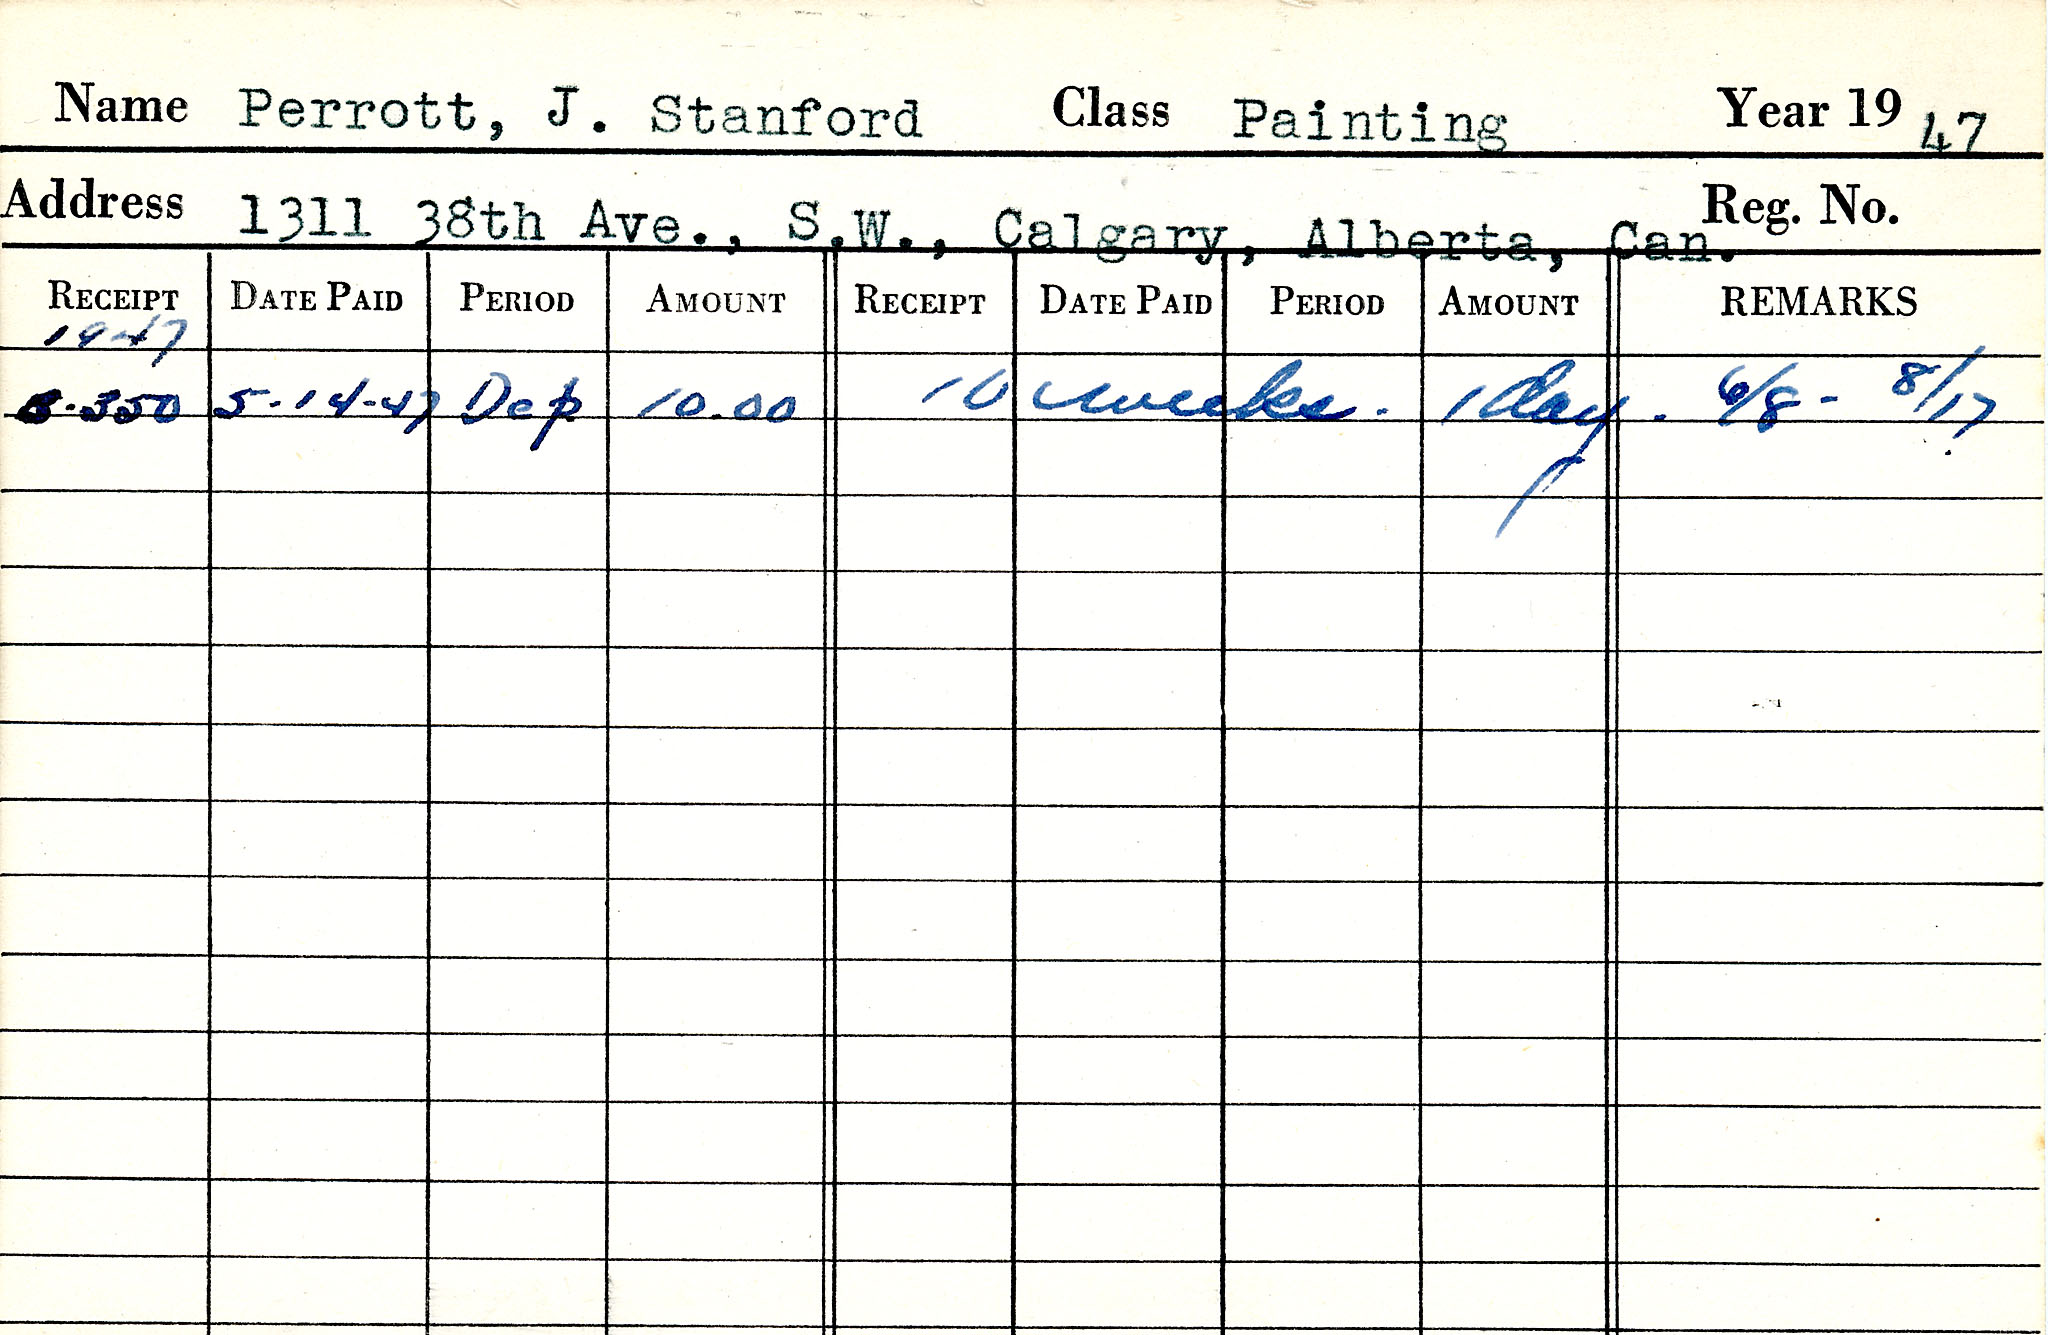 Name Perrott, J. Stanford Class Painting Year 19 47
Address 1311 38th Ave., S.W., Calgary, Alberta, Can. Reg. No.
RECEIPT DATE PAID PERIOD AMOUNT RECEIPT DATE PAID PERIOD AMOUNT REMARKS
1947
B-350 5-14-47 Dep 10.00 10 weeks. 1 day. 6/8 - 8/17